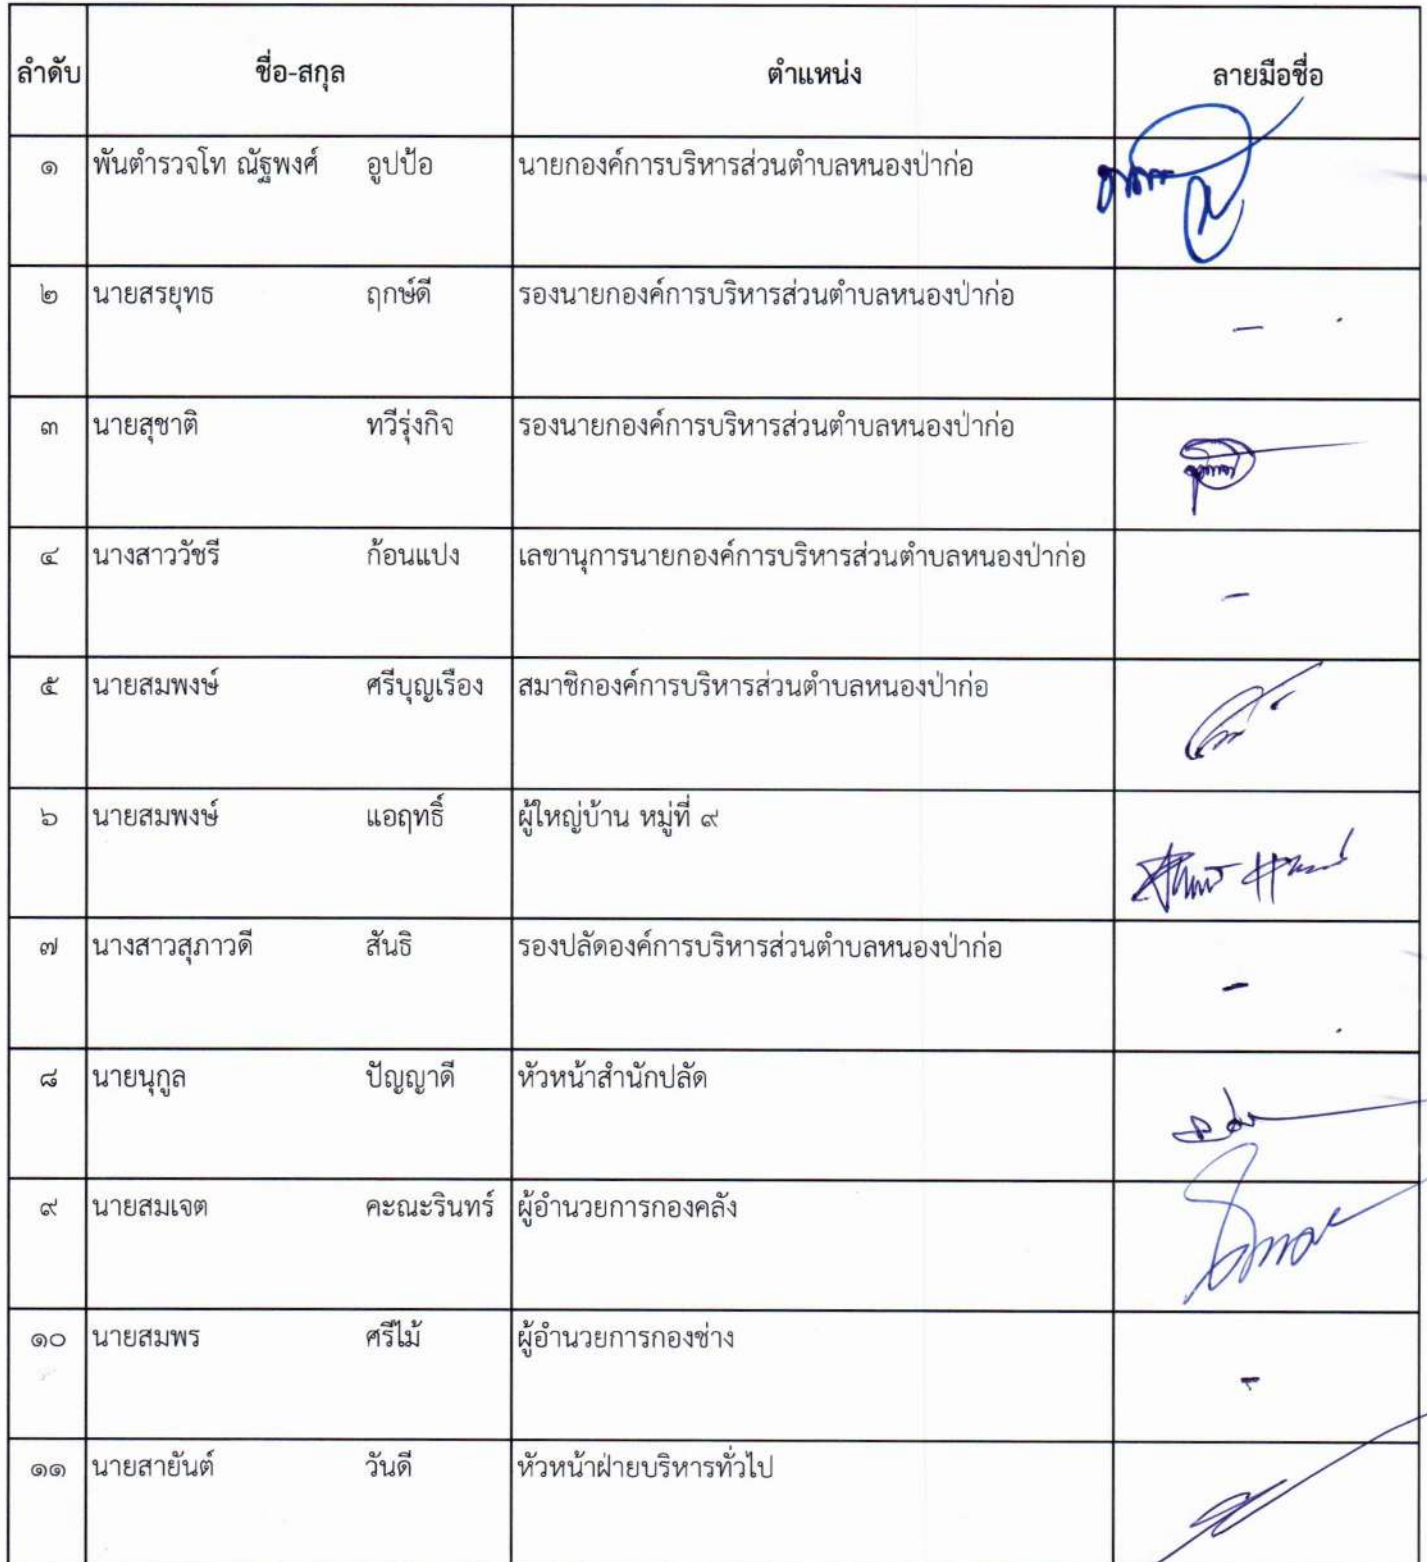 ลำดับ ชื่อ-สกุล ตำแหน่ง ลายมือชื่อ
๑ พันตำรวจโท ณัฐพงศ์ อูปป้อ นายกองค์การบริหารส่วนตำบลหนองป่าก่อ
๒ นายสรยุทธ ฤกษ์ดี รองนายกองค์การบริหารส่วนตำบลหนองป่าก่อ -
๓ นายสุชาติ ทวีรุ่งกิจ รองนายกองค์การบริหารส่วนตำบลหนองป่าก่อ
๔ นางสาววัชรี ก้อนแปง เลขานุการนายกองค์การบริหารส่วนตำบลหนองป่าก่อ -
๕ นายสมพงษ์ ศรีบุญเรือง สมาชิกองค์การบริหารส่วนตำบลหนองป่าก่อ
๖ นายสมพงษ์ แอฤทธิ์ ผู้ใหญ่บ้าน หมู่ที่ ๙
๗ นางสาวสุภาวดี สันธิ รองปลัดองค์การบริหารส่วนตำบลหนองป่าก่อ -
๘ นายนุกูล ปัญญาดี หัวหน้าสำนักปลัด
๙ นายสมเจต คะณะรินทร์ ผู้อำนวยการกองคลัง
๑๐ นายสมพร ศรีไม้ ผู้อำนวยการกองช่าง -
๑๑ นายสายันต์ วันดี หัวหน้าฝ่ายบริหารทั่วไป